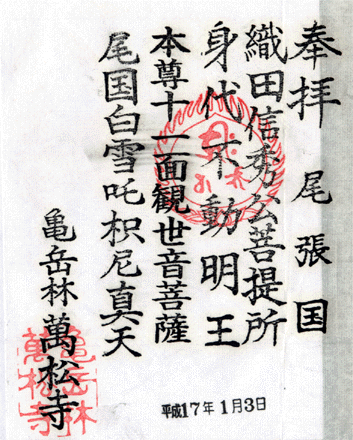 奉拝 尾張国
織田信秀公菩提所
身代不動明王
本尊十一面観世音菩薩
尾国白雪吒枳尼真天
亀岳林 萬松寺
亀岳林
萬松寺
平成17年1月3日